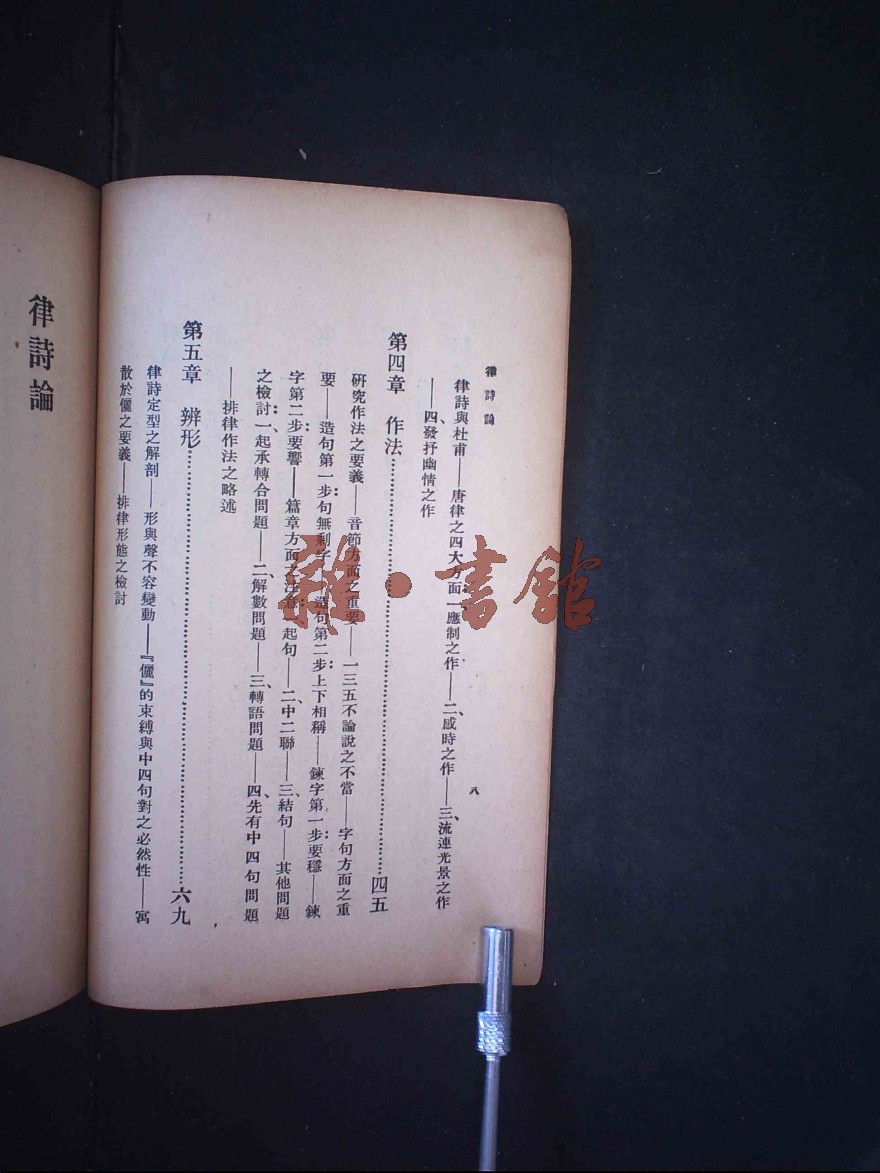 律詩論
八
律詩與杜甫——唐律之四大方面一、應制之作——二、感時之作——三、流連光景之作
——四、發抒幽情之作
第四章 作法……………………四五
研究作法之要義——音節方面之重要——一三五不論說之不當——字句方面之重
要——造句第一步:句無剩字——造句第二步:上下相稱——鍊字第一步:要穩——鍊
字第二步:要響——篇章方面之注意:一、起句——二、中二聯——三、結句——其他問題
之檢討:一、起承轉合問題——二、解數問題——三、轉語問題——四、先有中四句問題
——排律作法之略述
第五章 辨形……………………六九
律詩定型之解剖——形與聲不容變動——『儷』的束縛與中四句對之必然性——寓
散於儷之要義——排律形態之檢討
律詩論
雜·書館